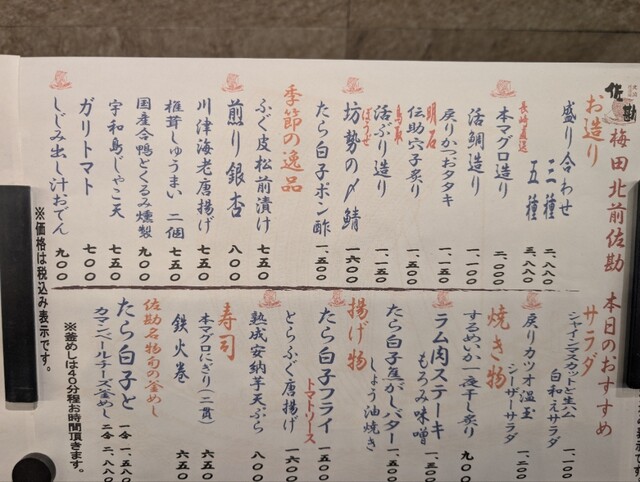 佐勘
梅田北前佐勘 本日のおすすめ
お造り
盛り合わせ
三種 二、八八〇
五種 三、八八〇
長崎直送
本マグロ造り 二、〇〇〇
活鯛造り 一、一〇〇
戻りかつおタタキ 一、一五〇
明石
伝助穴子炙り 一、五〇〇
鳥取
活ぶり造り 一、一五〇
ぼうぜ
坊勢の〆鯖 一六〇〇
たら白子ポン酢 一、五〇〇
季節の逸品
ふぐ皮松前漬け 七五〇
煎り銀杏 八〇〇
川津海老唐揚げ 七五〇
椎茸しゅうまい 二個 七五〇
国産合鴨とくるみ燻製 九〇〇
宇和島じゃこ天 七五〇
ガリトマト 七〇〇
しじみ出し汁おでん 九〇〇
サラダ
シャインマスカットと生ハム
白和えサラダ 一、一〇〇
戻りカツオ温玉
シーザーサラダ 一、二〇〇
焼き物
するめいか一夜干し炙り 九〇〇
ラム肉ステーキ
もろみ味噌 一、三〇〇
たら白子焦がしバター
しょう油焼き 一、五〇〇
揚げ物
たら白子フライ
トマトソース 一五〇〇
とらふぐ唐揚げ 一六〇〇
熟成安納芋天ぷら 八〇〇
寿司
本マグロにぎり(二貫) 六五〇
鉄火巻 六五〇
佐勘名物旬の釜めし
たら白子と
カマンベールチーズ釜めし 一合 一、五八〇
二合 二、八八〇
※釜めしは40分程お時間頂きます。
※価格は税込み表示です。